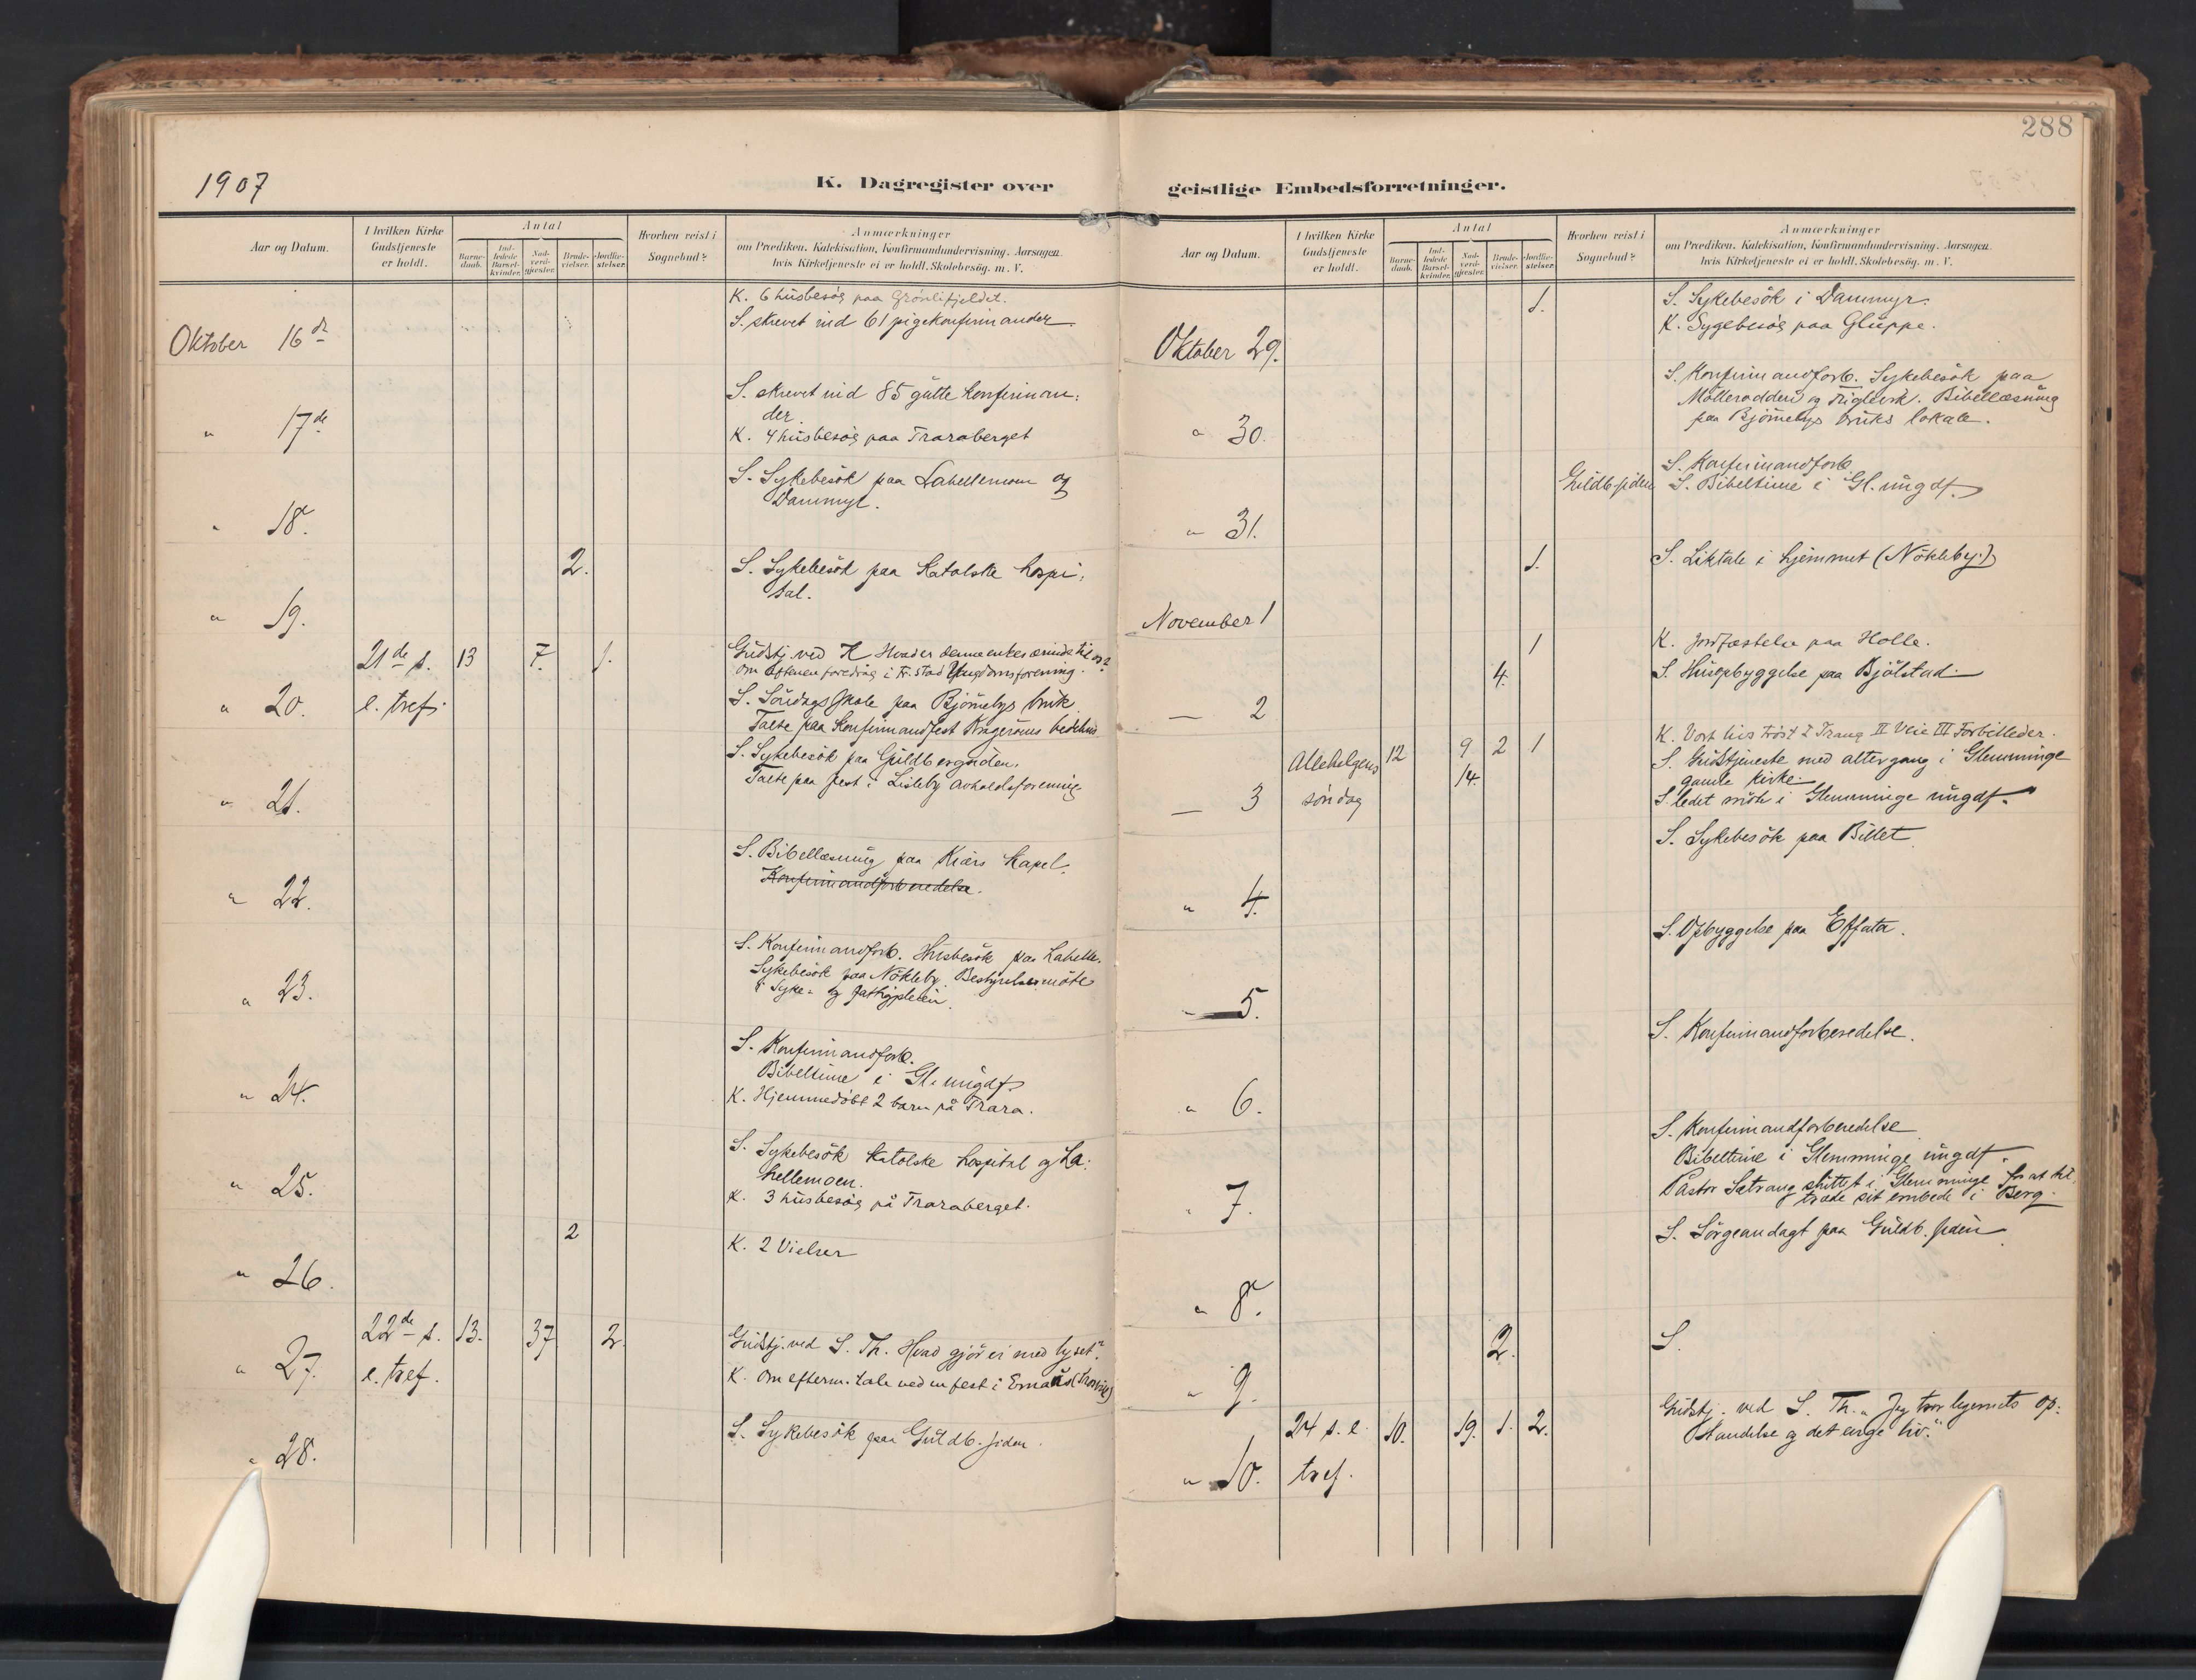 288
1907
K. Dagregister over
geistlige Embedsforretninger.
Aar og Datum.
I hvilken Kirke Gudstjeneste er holdt.
Antal
Barne-daab.
Ind-ledede Barsel-kvinder.
Nad-verd-gjester.
Brude-vielser.
Jordfæ-stelser.
Hvorhen reist i Sognebud?
Anmærkninger
om Prædiken. Katekisation, Konfirmandundervisning. Aarsagen.
hvis Kirketjeneste ei er holdt. Skolebesög. m. V.
K. 6 husbesög paa Grönlifjeldet.
S. skrevet ind 61 pigekonfirmander
Oktober 16de
S. skrevet ind 85 gutte konfirman:
der
K. 4 husbesög paa Traraberget
" 17de
S. Sykebesök paa Lahellemoen og
Dammyr.
" 18.
2.
S. Sykebesök paa Katolske hospi:
tal.
" 19.
21de s. 13 7. 1.
Gudstj. ved K
om aftenen foredrag i Fr.stad Ungdomsforening.
" 20. e. tref.
S. Söndagsskole paa Björnebys bruk
Talte paa Konfirmandfest bedehus
S. Sykebesök paa Guldbergsiden.
Talte paa fest i Lisleby avholdsforening
" 21.
S. Bibellæsning paa Kiærs Kapel.
Konfirmandforberedelse.
" 22.
S. Konfirmandforb. Husbesök paa Lahelle.
Sykebesök paa Nökleby. Bestyrelsesmöte
i Syke- og fattigpleien.
" 23.
S. Konfirmandforb.
Bibeltime i Gl. ungdf.
K. Hjemmedöbt 2 barn på Trara.
" 24.
S. Sykebesök Katolske hospital og La:
hellemoen.
K. 3 husbesög på Traraberget.
" 25.
2
K. 2 Vielser
" 26.
22de s. 13. 37 2.
Gudstj. ved S. Th. Hvad gjör vi med lyset?
" 27. e. tref.
K. Om efterm. tale ved en fest i Emaus
S. Sykebesök paa Guldb. siden.
" 28.
Aar og Datum.
I hvilken Kirke Gudstjeneste er holdt.
Antal
Barne-daab.
Ind-ledede Barsel-kvinder.
Nad-verd-gjester.
Brude-vielser.
Jordfæ-stelser.
Hvorhen reist i Sognebud?
Anmærkninger
om Prædiken. Katekisation, Konfirmandundervisning. Aarsagen.
hvis Kirketjeneste ei er holdt. Skolebesög. m. V.
1.
S. Sykebesök i Dammyr.
K. Sygebesög paa Gluppe.
Oktober 29.
S. Konfirmandforb. Sykebesök paa
Mölleradden og Teglverk. Bibellæsning
paa Björnebys bruks lokale.
" 30.
S. Konfirmandforb.
Guldb.siden S. Bibeltime i Gl. ungdf.
" 31.
1.
S. Liktale i hjemmet (Nökleby.)
November 1
1
K. Jordfæstelse paa Holle.
4.
S. Husopbyggelse paa Bjölstad.
— 2
K. Vort livs tröst I Trang II Veie III Forbilleder.
Allehelgens 12 9 2 1
S. Gudstjeneste med altergang i Glemminge
gamle kirke.
14.
— 3 söndag
S. ledet möte i Glemminge ungdf.
S. Sykebesök paa Billet.
" 4.
S. Opbyggelse paa Effata.
5.
S. Konfirmandforberedelse.
" 6.
S. Konfirmandforberedelse
Bibeltime i Glemminge ungdf.
Pastor Satrang sluttet i Glemminge for at til:
træde sit embede i Berg.
" 7.
S. Sörgeandagt paa Guldb. siden
" 8.
2.
S.
" 9.
24 s. e. 10. 19. 1. 2.
Gudstj. ved S. Th. „Jeg tror legemets op:
standelse og det evige liv."
" 10. tref.